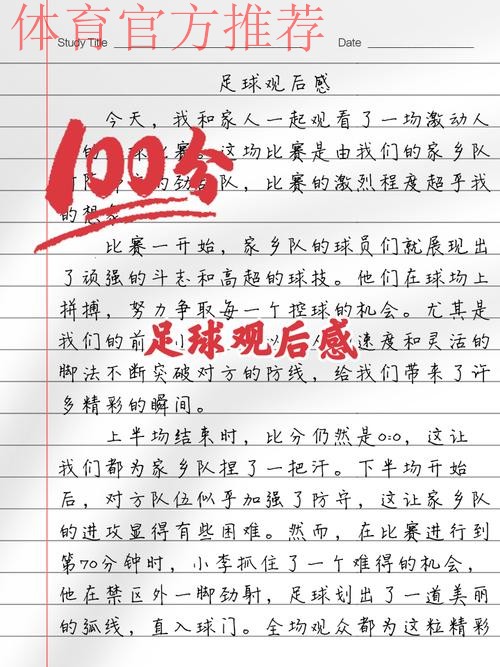 体育官方推荐
Study Title
Date
足球观后感
今天，我和家人一起观看了一场激动人
球比赛。这场比赛是由我们的家乡队
劲 队，比赛的激烈程度超乎我
的想象
100分
比赛一开始，家乡队的球员们就展现出
了顽强的斗志和高超的球技。他们在球场上
拼搏，努力争取每一个控球的机会。尤其是
我们的前 小 以 人 速度和灵活的
足球观后感
脚法不断突破对方的防线，给我们带来了许
多精彩的瞬间。
上半场结束时，比分仍然是0:0，这让
我们都为家乡队捏了一把汗。下半场开始
后，对方队伍似乎加强了防守，这让家乡队
的进攻显得有些困难。然而，在比赛进行到
第70分钟时，小李抓住了一个难得的机会，
他在禁区外一脚劲射，足球划出了一道美丽
的弧线，直入球门。全场观众都为这粒精彩